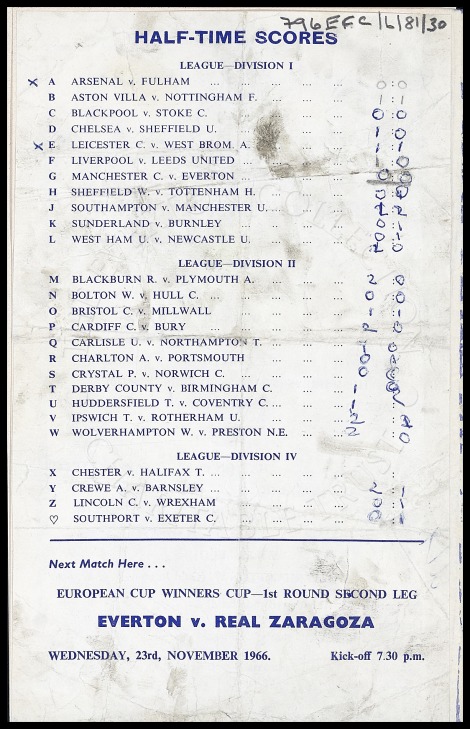 796 EFC/L/81/30
HALF-TIME SCORES
LEAGUE—DIVISION I
x A ARSENAL v. FULHAM ... ... ... ... 0 : 0
B ASTON VILLA v. NOTTINGHAM F. ... ... ...
C BLACKPOOL v. STOKE C. ... ... ... 0
D CHELSEA v. SHEFFIELD U. ... ... ...
x E LEICESTER C. v. WEST BROM. A. ... ...
F LIVERPOOL v. LEEDS UNITED ... ... ... ...
G MANCHESTER C. v. EVERTON ... ... ...
H SHEFFIELD W. v. TOTTENHAM H. ... ...
J SOUTHAMPTON v. MANCHESTER U. ... ... ...
K SUNDERLAND v. BURNLEY ... ... ...
L WEST HAM U. v. NEWCASTLE U. ... ... ...
LEAGUE—DIVISION II
M BLACKBURN R. v. PLYMOUTH A. ... ... ... 2 0
N BOLTON W. v. HULL C. ... ... ... ... 0
O BRISTOL C. v. MILLWALL ... ... ...
P CARDIFF C. v. BURY ... ... ... ... P
Q CARLISLE U. v. NORTHAMPTON T. ... ... ...
R CHARLTON A. v. PORTSMOUTH ... ... ...
S CRYSTAL P. v. NORWICH C. ... ... ... ...
T DERBY COUNTY v. BIRMINGHAM C. ... ...
U HUDDERSFIELD T. v. COVENTRY C. ... ... ...
V IPSWICH T. v. ROTHERHAM U. ... ... ...
W WOLVERHAMPTON W. v. PRESTON N.E. ... ... 2 0
LEAGUE—DIVISION IV
X CHESTER v. HALIFAX T. ... ... ... ... ...
Y CREWE A. v. BARNSLEY ... ... ... ... 2
Z LINCOLN C. v. WREXHAM ... ... ...
♡ SOUTHPORT v. EXETER C. ... ... ... ...
Next Match Here . . .
EUROPEAN CUP WINNERS CUP—1st ROUND SECOND LEG
EVERTON v. REAL ZARAGOZA
WEDNESDAY, 23rd, NOVEMBER 1966. Kick-off 7.30 p.m.